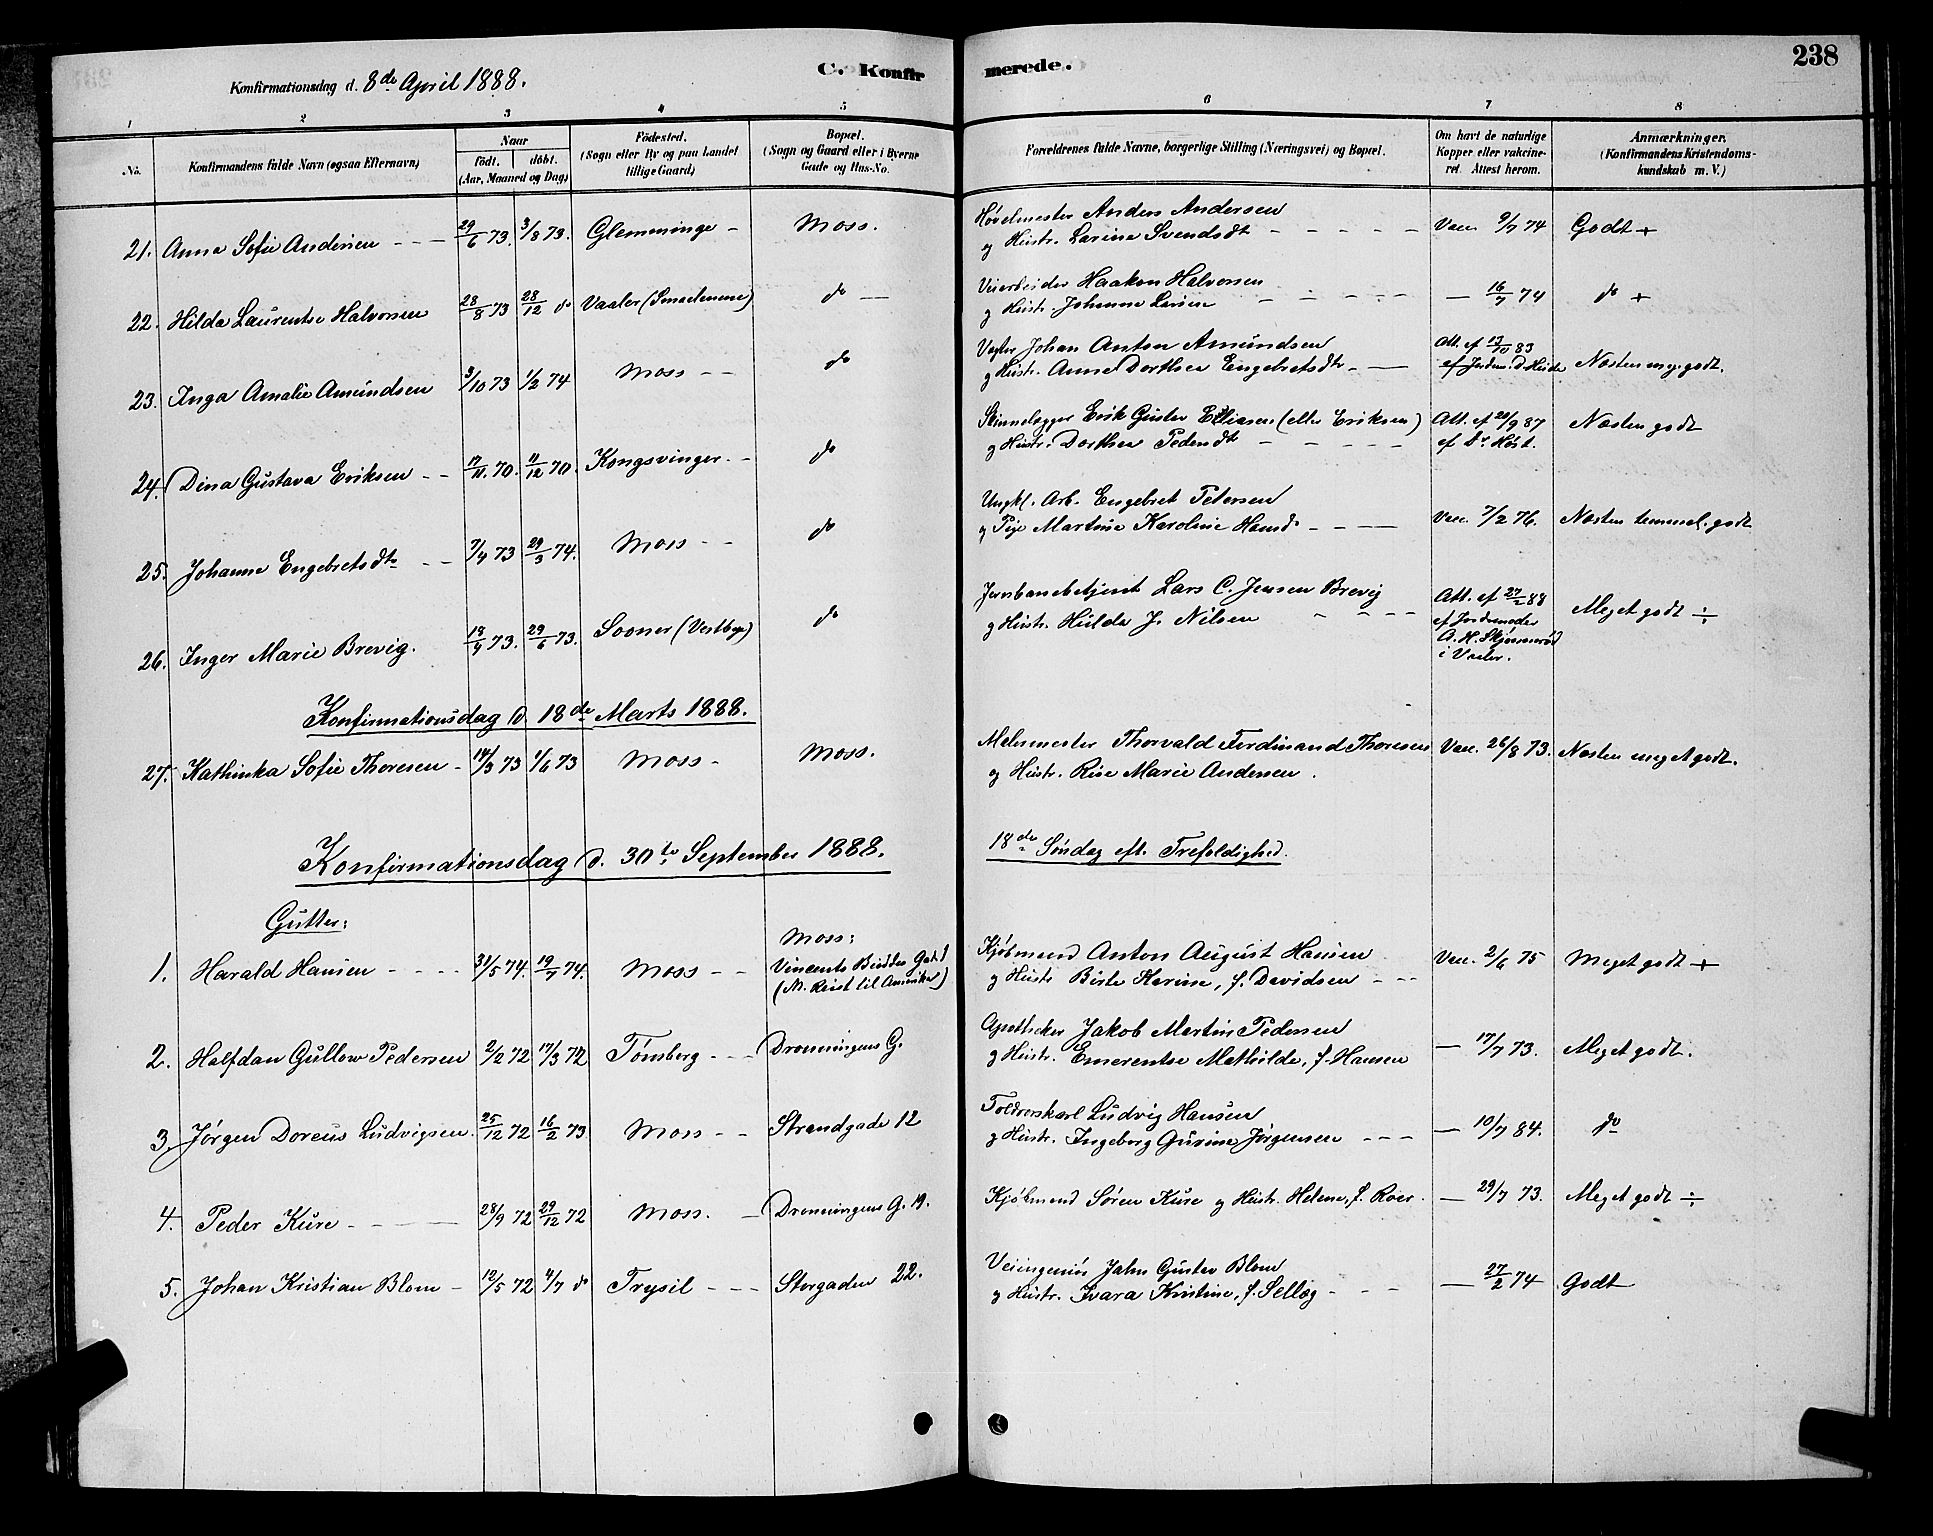 238
C. Konfirmerede.
Konfirmationsdag d. 8de April 1888.
1 2 3 4 5 6 7 8
No.
Konfirmandens fulde Navn (ogsaa Efternavn)
Naar
födt. döbt.
(Aar, Maaned og Dag)
Födested.
(Sogn eller By og paa Landet
tillige Gaard)
Bopæl.
(Sogn og Gaard eller i Byerne
Gade og Hus-No.
Forældrenes fulde Navne, borgerlige Stilling (Næringsvei) og Bopæl.
Om havt de naturlige
Kopper eller vakcine-
ret. Attest herom.
Anmærkninger.
(Konfirmandens Kristendoms-
kundskab m. V.)
21. Anna Sofie Andersen - - - 29/6 73. 3/8 73. Glemminge - Moss. Høvelmester Anders Andersen Vacc. 9/7 74 Godt +
og Hustr. Larine Svendsdt - - - - -
22. Hilda Laurentse Halvorsen 28/8 73 28/12 do Vaaler do Veiarbeider Haakon Halvorsen — 16/7 74 do +
g Hustr. Johanne Larsen
23. Inga Amalie Amundsen 3/10 73 1/2 74 Moss - - do Johan Anton Amundsen Att. af 13/10 83 Næsten meg. godt.
g Hustr. Anne Dorthea Engebretsdtr
24. Dina Gustava Eriksen - - 17/11 70. 11/12 70. Kongsvinger. - do Erik Gustav Eliasen (eller Eriksen) Att. af 20/9 87 Næsten godt
g Hustr. Dorthea Pedersdt af Dr Høst.
25. Johanne Engebretsdtr - - 7/4 73 29/3 74. Moss - - do Ungkl. Arb. Engebret Petersen Vacc. 7/2 76. Næsten temmel. godt
g Pige Martine Karoline Hansd.
26. Inger Marie Brevig. 18/4 73. 29/6 73. Sooner (Vestby) do Jernbanebetjent Lars C. Jensen Brevig Att. af 27/2 88 Meget godt ÷
g Hustr. Hulda J. Nilsen af Jordemoder
A. H.
i Vaaler.
Konfirmationsdag d. 18de Marts 1888.
27. Kathinka Sofie Thoresen - 14/3 73 1/6 73 Moss - Moss. Malermester Thorvald Ferdinand Thoresen Vacc. 26/8 73. Næsten meget godt.
og Hustr. Rise Marie Andersen.
Konfirmationsdag d. 30te September 1888. 18de Søndag eft. Trefoldighed.
Gutter:
Moss:
1. Harald Hansen - - - - 31/5 74. 19/7 74. Moss - - Vincents Buddes Gd. 1 Kjøbmand Anton August Hansen Vacc. 2/6 75 Meget godt +
(M. Reist til Amerika) g Hustr Birte Karine, f. Davidsen - - -
2. Halfdan Gullow Pedersen 2/2 72 17/3 72 Tønsberg - - - Dronningens G. Apotheker Jakob Martin Pedersen — 17/7 73. Meget godt.
g Hustr. Emerentse Mathilde, f. Hansen
3. Jørgen Doreus Ludvigsen 25/12 72 16/2 73 Moss - - Strandgade 12 Toldrorskarl Ludvig Hansen — 10/7 84. do
g Hustr. Ingeborg Gurine Jørgensen - - -
4. Peder Kure - - - 28/9 72 29/12 72 Moss. - Dronningens G. 19. Kjøbmand Søren Kure g Hustr. Helene, f. Roer. — 29/7 73. Meget godt ÷
5. Johan Kristian Blom - 12/5 72 4/7 do Trysil - - - Storgaden 22. Veiingeniør Jahn Gustav Blom — 27/2 74 Godt
g Hustr. Ivara Kristine, f. Selleg - - -